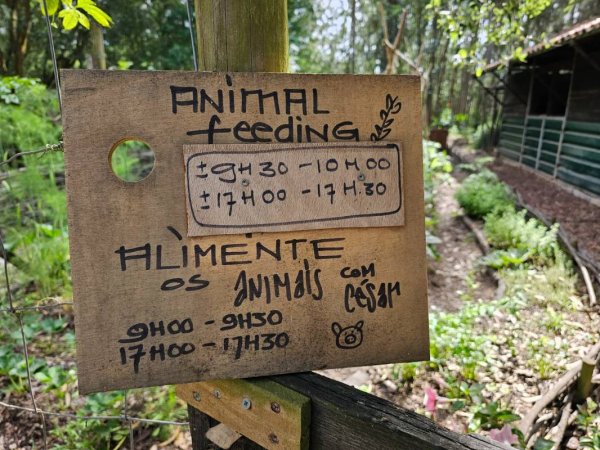 ANIMAL
feeding
±9H30 - 10H00
±17H00 - 17H30
ALIMENTE
os ANIMAIS com CÉSAR
9H00 - 9H30
17H00 - 17H30